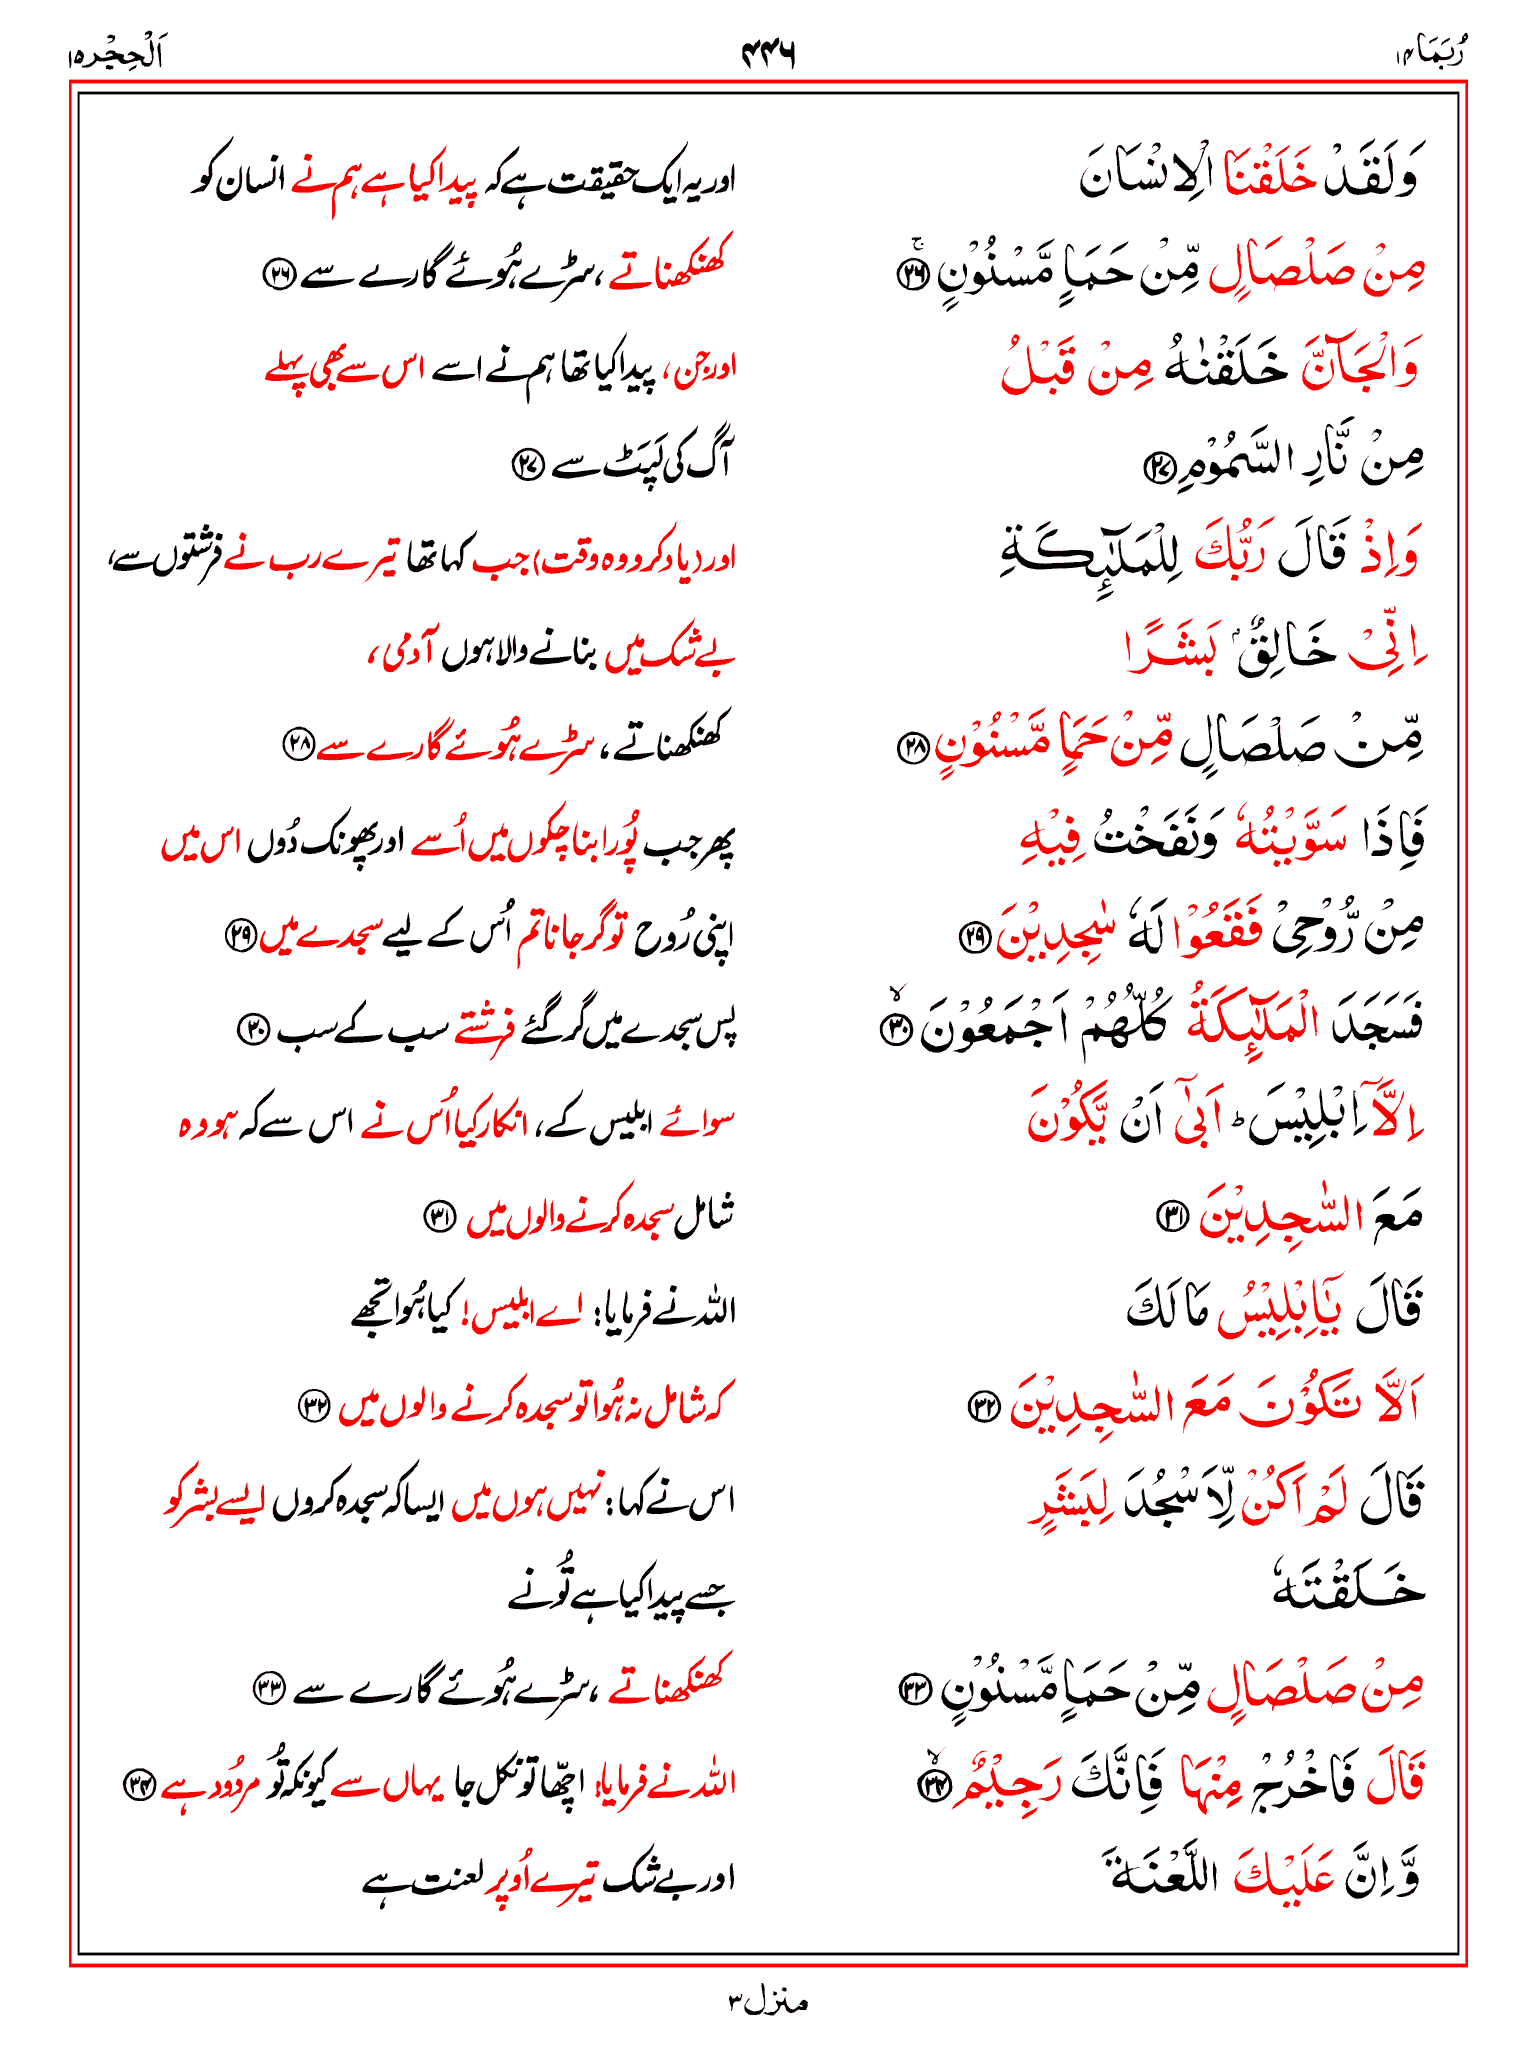 رُبَمَا ۱۴ ۴۴۶ اَلْحِجْر ۱۵
وَلَقَدْ خَلَقْنَا الْاِنْسَانَ اور یہ ایک حقیقت ہے کہ پیدا کیا ہے ہم نے انسان کو
مِنْ صَلْصَالٍ مِّنْ حَمَاٍ مَّسْنُوْنٍ ۚ ﴿۲۶﴾ کھنکھناتے ، سڑے ہُوئے گارے سے ﴿۲۶﴾
وَالْجَآنَّ خَلَقْنٰهُ مِنْ قَبْلُ اور جن، پیدا کیا تھا ہم نے اسے اس سے بھی پہلے
مِنْ نَّارِ السَّمُوْمِ ﴿۲۷﴾ آگ کی لَپَٹ سے ﴿۲۷﴾
وَاِذْ قَالَ رَبُّكَ لِلْمَلٰٓئِكَةِ اور (یاد کرو وہ وقت) جب کہا تھا تیرے رب نے فرشتوں سے،
اِنِّىْ خَالِقٌۢ بَشَرًا بے شک میں بنانے والا ہوں آدمی،
مِّنْ صَلْصَالٍ مِّنْ حَمَاٍ مَّسْنُوْنٍ ﴿۲۸﴾ کھنکھناتے ، سڑے ہُوئے گارے سے ﴿۲۸﴾
فَاِذَا سَوَّيْتُهٗ وَنَفَخْتُ فِيْهِ پھر جب پُورا بنا چکوں میں اُسے اور پھونک دُوں اس میں
مِنْ رُّوْحِىْ فَقَعُوْا لَهٗ سٰجِدِيْنَ ﴿۲۹﴾ اپنی رُوح تو گر جانا تم اُس کے لیے سجدے میں ﴿۲۹﴾
فَسَجَدَ الْمَلٰٓئِكَةُ كُلُّهُمْ اَجْمَعُوْنَ ۙ ﴿۳۰﴾ پس سجدے میں گر گئے فرشتے سب کے سب ﴿۳۰﴾
اِلَّآ اِبْلِيْسَ ؕ اَبٰٓى اَنْ يَّكُوْنَ سوائے ابلیس کے، انکار کیا اُس نے اس سے کہ ہو وہ
مَعَ السّٰجِدِيْنَ ﴿۳۱﴾ شامل سجدہ کرنے والوں میں ﴿۳۱﴾
قَالَ يٰۤاِبْلِيْسُ مَا لَكَ اللہ نے فرمایا: اے ابلیس! کیا ہُوا تجھے
اَلَّا تَكُوْنَ مَعَ السّٰجِدِيْنَ ﴿۳۲﴾ کہ شامل نہ ہُوا تو سجدہ کرنے والوں میں ﴿۳۲﴾
قَالَ لَمْ اَكُنْ لِّاَسْجُدَ لِبَشَرٍ اس نے کہا: نہیں ہوں میں ایسا کہ سجدہ کروں ایسے بشر کو
خَلَقْتَهٗ جسے پیدا کیا ہے تُو نے
مِنْ صَلْصَالٍ مِّنْ حَمَاٍ مَّسْنُوْنٍ ﴿۳۳﴾ کھنکھناتے ، سڑے ہُوئے گارے سے ﴿۳۳﴾
قَالَ فَاخْرُجْ مِنْهَا فَاِنَّكَ رَجِيْمٌ ۙ ﴿۳۴﴾ اللہ نے فرمایا: اچھّا تو نکل جا یہاں سے کیونکہ تُو مردُود ہے ﴿۳۴﴾
وَّاِنَّ عَلَيْكَ اللَّعْنَةَ اور بے شک تیرے اُوپر لعنت ہے
منزل ۳